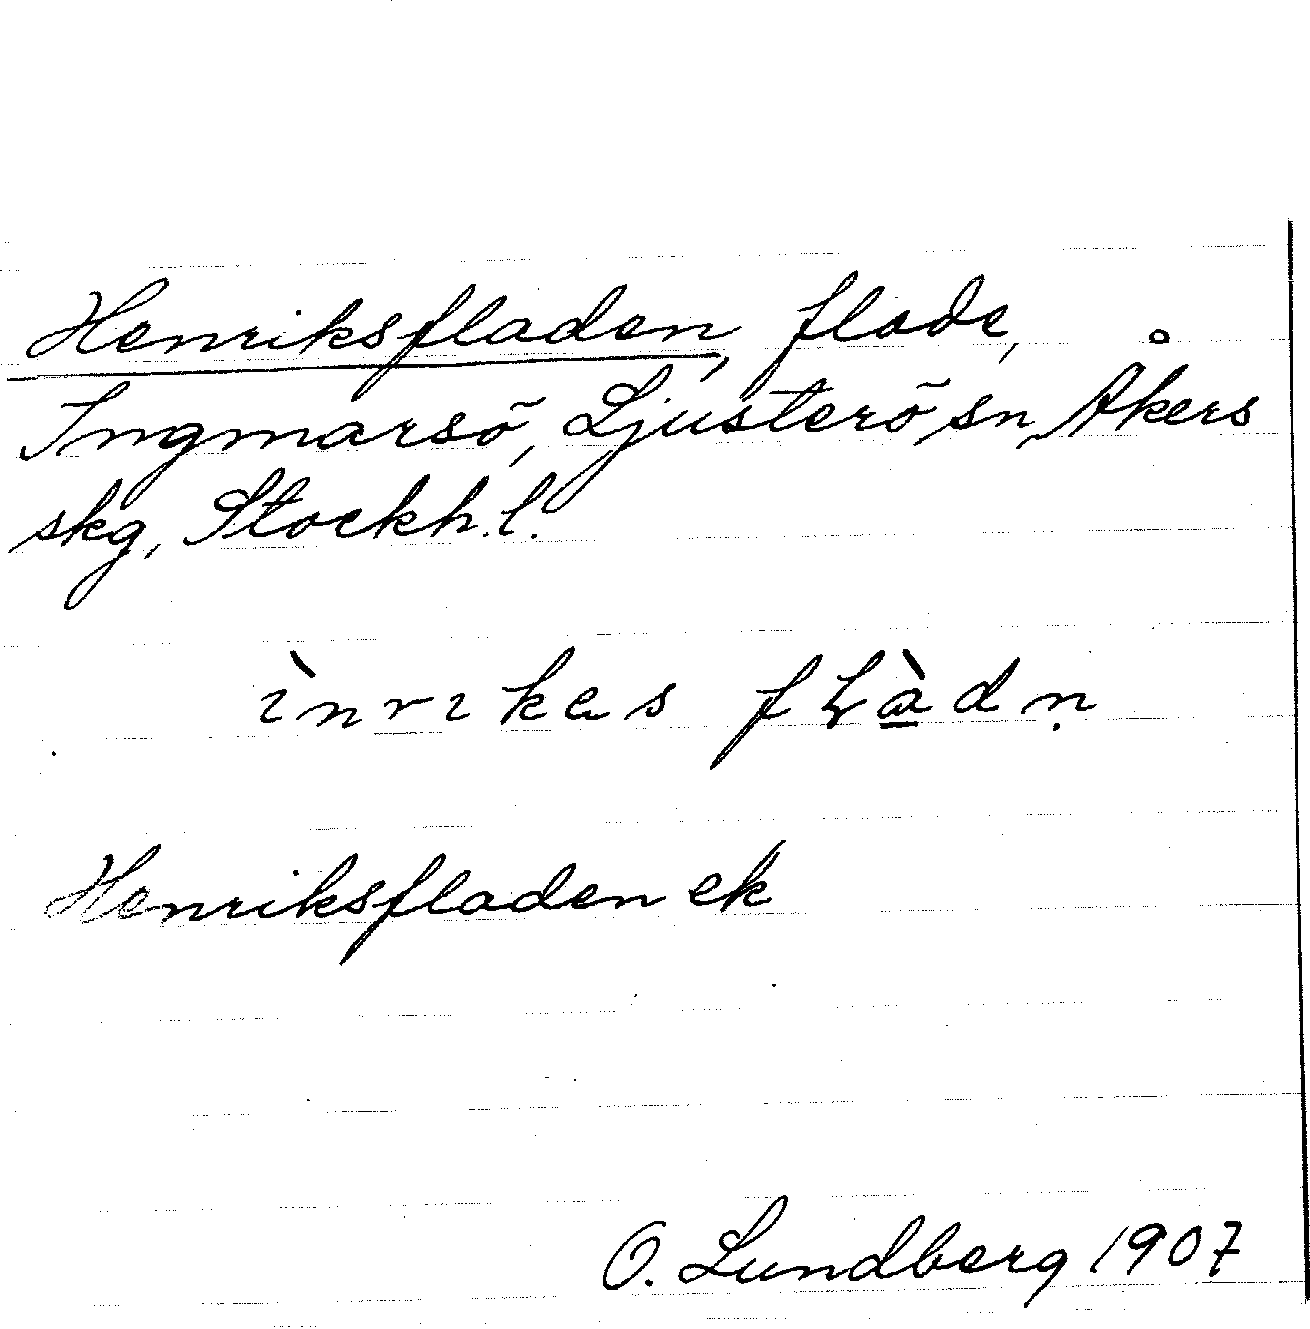 Henriksfladen, flade,
Ingmarsö, Ljusterö sn, Åkers
skg, Stockh. l.
ìnrıkes fꞎàdṇ
Henriksfladen ek
O. Lundberg 1907